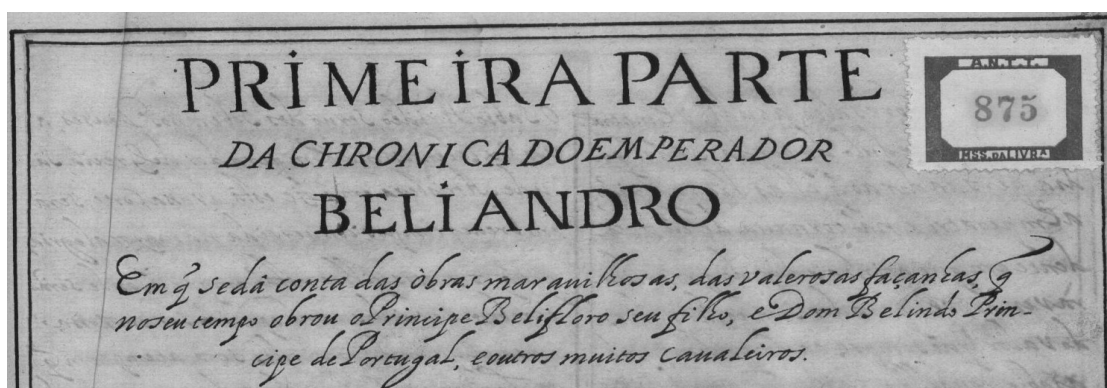 PRIMEIRA PARTE
DA CHRONICA DO EMPERADOR
BELIANDRO
Em q̃ se dâ conta das òbras marauilhosas, das valerosas façanhas, q̃
no seu tempo obrou o Principe Belifloro seu filho, e Dom Belindo Prin-
cipe de Portugal, e outros muitos Caualeiros.
A.N.T.T.
875
MSS. DA LIVRA